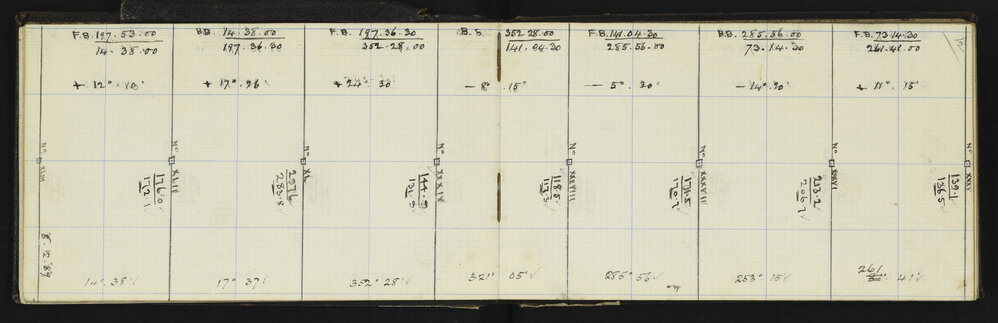 F.B. 197.53.00 B.B. 14.38.00 F.B. 197.36.30 B.B. 352.28.00 F.B. 141.04.30 B.B. 285.56.00 F.B. 73.14.30
14.38.00 197.36.30 352.28.00 141.04.30 285.56.00 73.14.30 261.41.00
+ 12°.10' + 17°.26' + 24°.30' - 8° 15' - 5°.30' - 14°.20' + 11°.15'
No XLIII No XLII No XL No XXXIX No XXXVIII No XXXVII No XXXVI No XXXV
176.0 297.6 144.9 118.5 171.5 213.2 139.1
172.11 283.8 131.9 117.3 170.7 206.7 136.5
8.12.89
14°.38' 17°.37' 352°.28' 321° 05' 285°.56' 253°.15' 261
41'